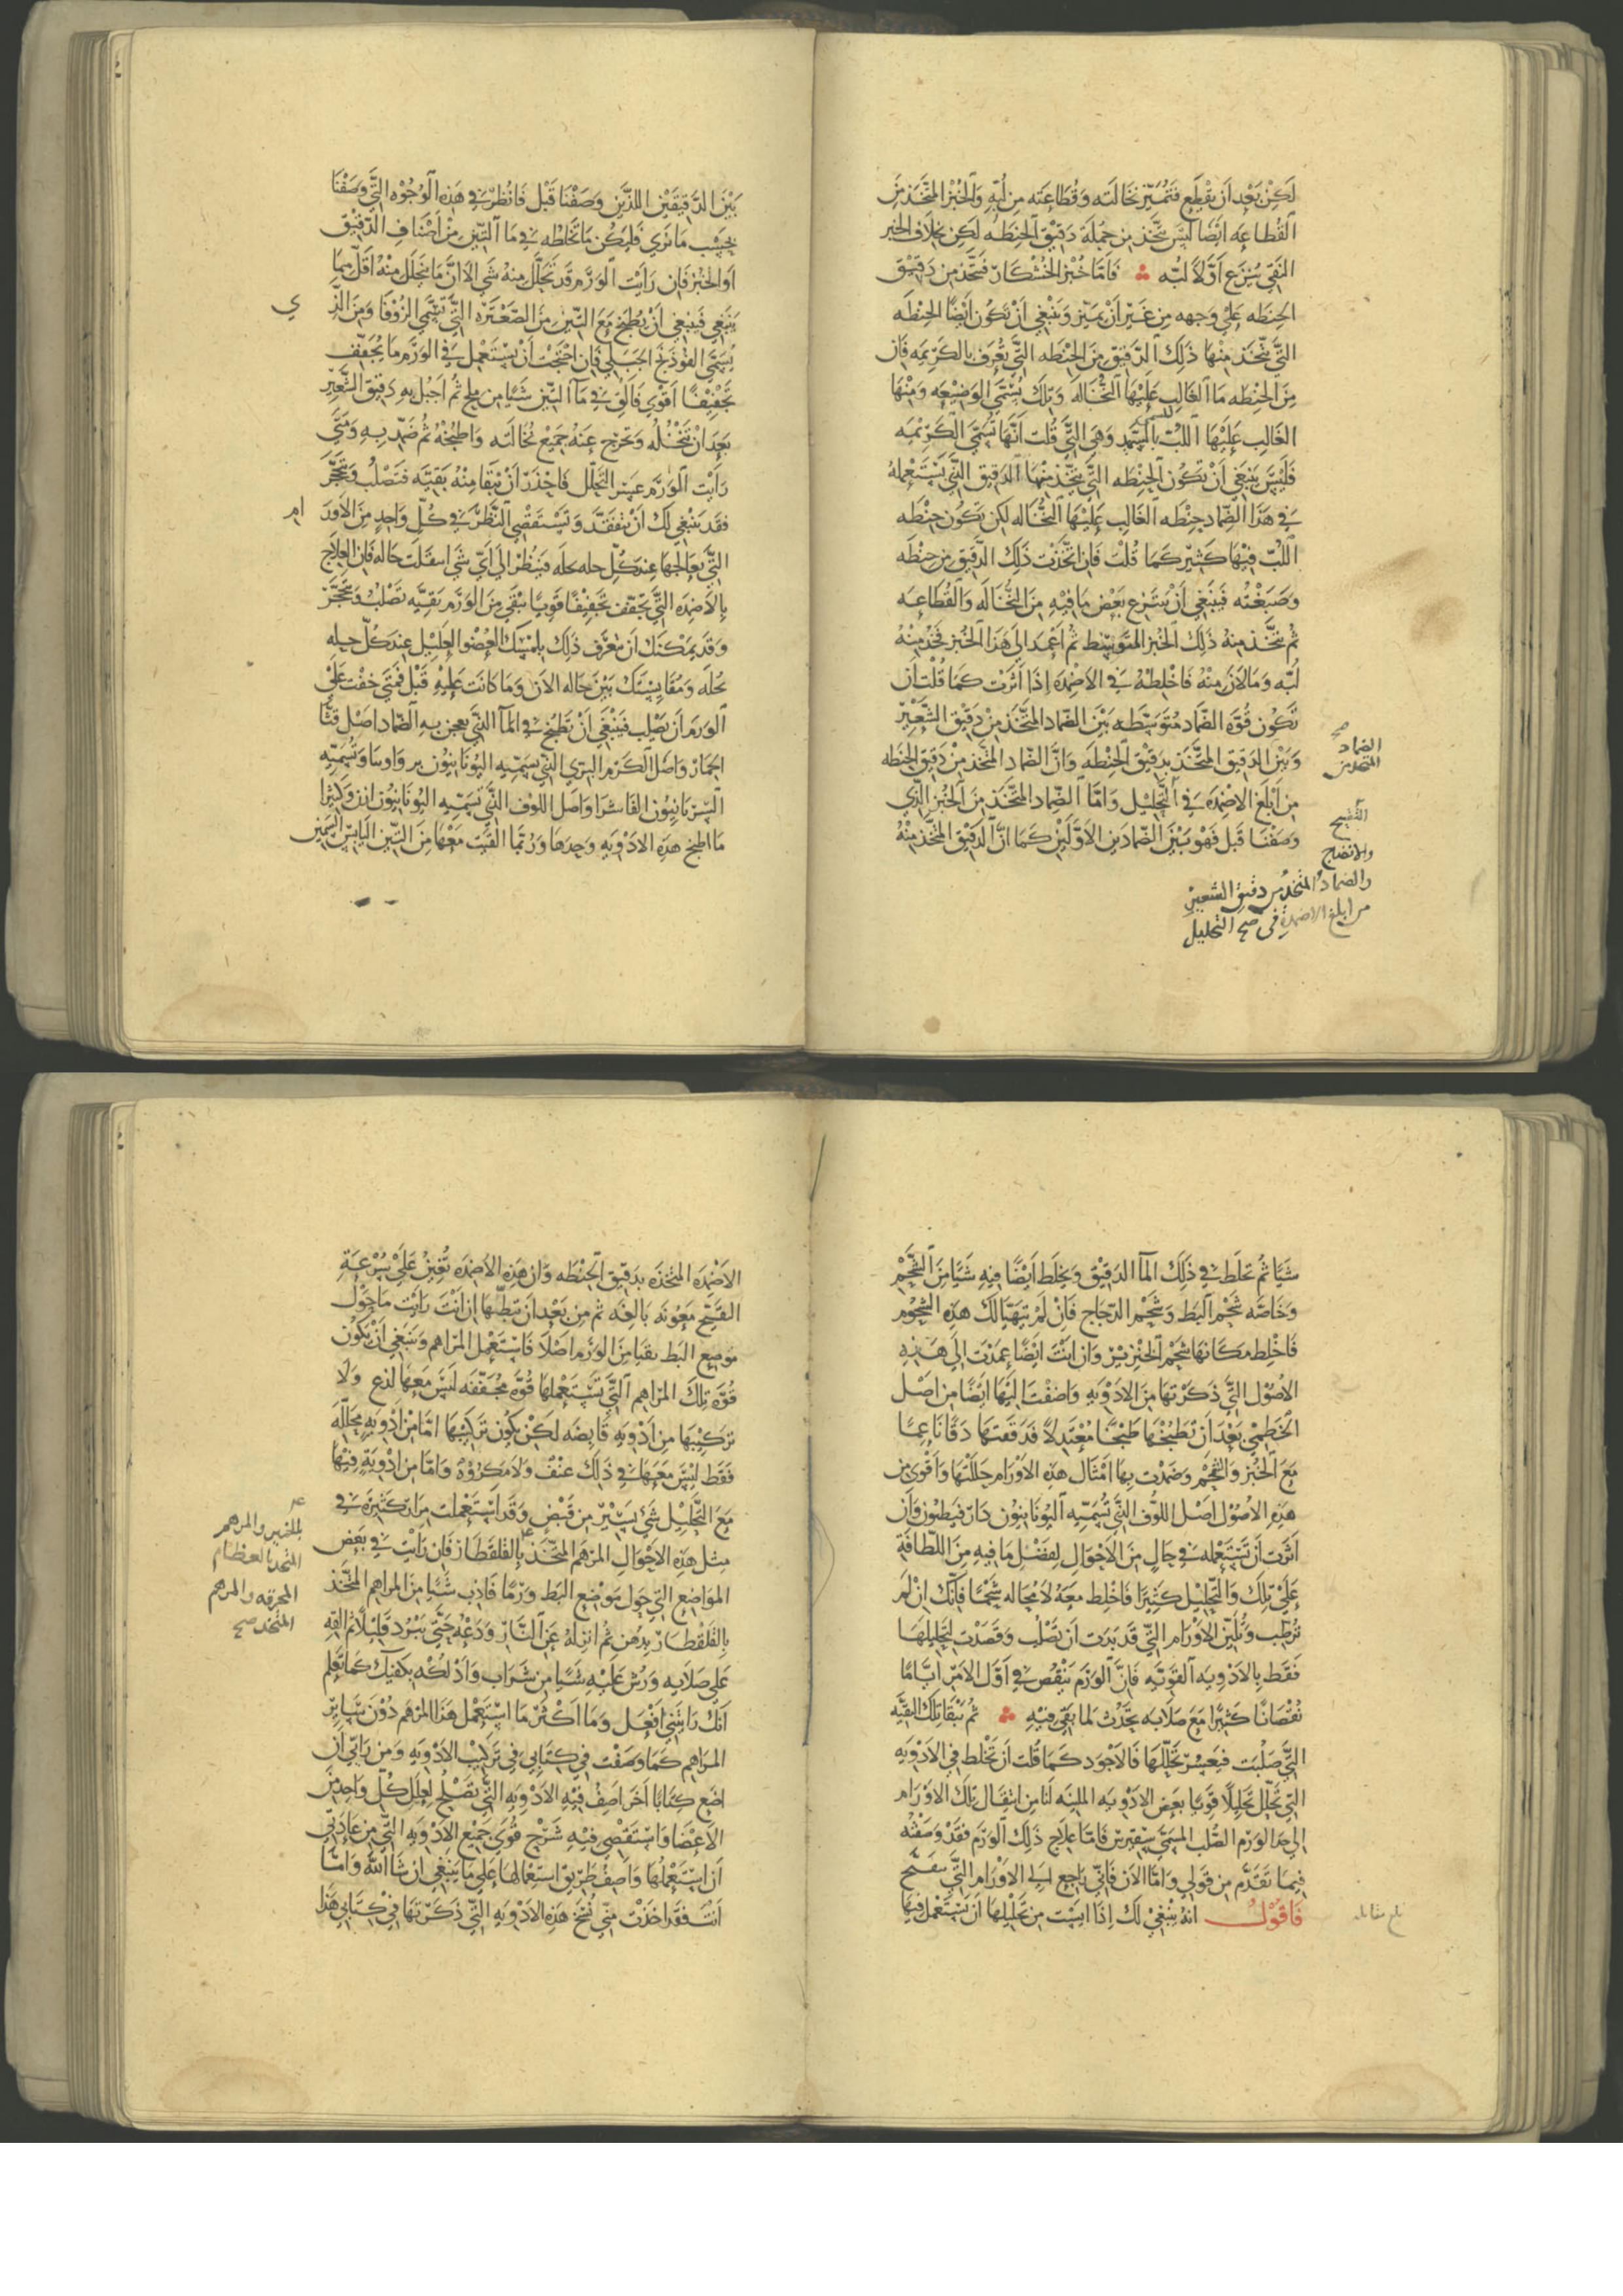 لَكِنْ بَعْد اَن يقْلَع فَتُمَيّز نخَالَته وَقُطَاعَته مِن لُبّهِ وَالخُبْز المتَّخَذ مِنَ
القُطاعَه ايْضًا ليسَ يتّخذ من جُملَة دَقيْق الحِنطَه لكِن بخلاَف الخبز
النقى يُنزع اَوّلاً لبّه فَامّا خُبْز الخُشْكَار فَيتّخذ مِن دَقيْق
الحِنطَه عَلى وَجهه مِن غَيْر اَنْ يميّز وَينْبغي اَنْ تكُون اَيْضًا الحِنْطَه
التَّي يتّخَذ مِنْهَا ذَلِكَ الدَّقيْق مِنَ الحِنْطَه التَّي تعْرف بالكَرِيمَه فَانَّ
مِنَ الحِنطَه مَا الغَالِب عَليْهَا النُّخَاله وَتلكَ تُسَمَّى الوَضِيْعَه وَمنْهَا
الغَالِب عَليْهَا اللبّ وَهيَ التَّي قُلت انَّهَا تُسَمَّى الكَرِيْمَه
فَليْسَ يَنبَغي اَنْ تَكُون الحِنطَه التَّي يتّخذ مِنْهَا الدَقيق التَّي يَسْتَعْمله
في هَذا الضِّماد حِنْطَه الغَالِب عَليْهَا النُّخَاله لكِن تكُون حِنْطَه
اللبّ فيْهَا كَثيْر كَمَا قُلتُ فَاِن اتّخَذت ذَلِكَ الدّقيق مِن حِنْطَه
وصَبَغْته فَينبغي اَنْ يَنتَزع بَعْض مَا فيْهِ مِنَ النُّخَالَه وَالقُطَاعَه
ثم يتّخذ منهُ ذَلِكَ الخُبز المتَوسّط ثم اعْمد اِلى هَذا الخُبز فخذ مِنْهُ
لُبّه وَمَا لاَنَ مِنْهُ فَاخْلِطْهُ في الاَضْمِدَه اِذَا اَثرْتَ كَما قُلتُ اَن
تَكُون قُوَّة الضّمَاد مُتوَسّطَه بَيْنَ الضّمَاد المتَّخَذ مِنْ دَقيْق الشَّعِيْر
وَبَيْن الدَقيق المتَّخذ بدَقيْق الحِنْطَه وَانَّ الضّماد المتّخذ مِنْ دَقيق الحنطه
مِن اَبْلغ الاضمدَه في التَّحْليْل وَامَّا الضّماد المتَّخذ مِنَ الخُبْز الَّذِي
وَصَفْنَا قَبل فَهْوَ بَيْنَ الضّمادَين الاَوَّليْن كَمَا اَنَّ الدَقيْق المتَّخذ مِنْهُ
الضماد
المتخذ من
التقيح
والانضاج
والضماد المتخذ من دقيق الشعير
من ابلغ الاضمدة في صح التحليل
بيْنَ الدّقيقَيْن اللذَيْن وَصَفْنا قَبْل فَانظر في هَذِه الوُجُوْه التَّي وَصَفْنَا
بحَسْب مَا تَرى فَليكُن مَا تخلطه في مَا التّين مِنْ اَصْنَافِ الدّقيْق
اَو الخُبز فَاِن رَاَيت الوَرَم قَد تحلّل منهُ شَي الاّ انَّ مَا يتحلّل مِنْهُ اَقل ممّا
يَنْبَغي فَينبَغي اَنْ يُطبخ مَعَ التّين مِنَ الصَّعْترَه التَّي تُسَمَّى الزُوْفَا وَمِن الّذ ي
يُسَمَّى الفُوْذَنج الجَبَلي فَاِن احْتَجْتَ اَنْ تَسْتَعْمل في الوَرَم مَا يُجَفّف
تجْفيْفًا اَقْوى فَالق في مَا التّين شَيًّا مِن مِلح ثُم اجبُل بهِ دَقيْق الشَّعِيْر
بَعدَ اَنْ تَنْخُلُه وَتخرج عَنهُ جميْع نخَالتَه وَاطبُخْهُ ثم ضمّد بِهِ وَمَتَى
رَاَيْت الوَرَم عَسِر التحَلل فَاحْذر اَنْ تَبْقَا مِنْهُ بَقيّه فَتَصْلُب وَتَتَحَجَّر
فقَد يَنْبغي لَكَ اَنْ تَتفقّد وَتَسْتَقْصي النَّظر في كُلّ وَاحِدٍ مِنَ الاَور ام
التَّي تُعَالجهَا عِندَ كُلّ حلّه بحلّه فَتنظر اِلى اَيّ شَي انتقَلت حَاله فَاِن العِلاَج
بالاَضمِدَه التَّي تجَفّف تجْفيْفًا قَويًّا تبْقى مِنَ الوَرَم بَقيّه تَصْلبُ وَتَتحَجَّر
وَقَد يمْكنك اَن تتعَرَّف ذَلِكَ بلَمْسِكَ العُضو العَليْل عِندَ كُلّ حله
بحلّه وَمُقَايسَتك بَيْنَ حَاله الاَن وَمَا كانَت عَليْهِ قَبْل فَمَتَى خِفْت عَلى
الوَرم اَن يَصْلب فَيَنْبَغي اَنْ تَطبخ في المَا الذَّي يعجن بهِ الضّماد اصْل قثَّا
الحِمَار وَاصل الكَرْم البَرّي الذي يُسَمّيهِ اليُونَانيُّون وَتُسَمّيْهِ
السّرْيَانيُّون الفاشرَا وَاصل اللوف الذَّي تسَمّيه اليُونَانيُّون اَرن وَكَثيْرًا
مَا اطبخ هَذِه الاَدْوِيَه وَحِدهَا وَرُبّمَا القَيْت مَعْهَا مِنَ التّين اليَابِس السّمين
شَيًا ثُم تخلَط في ذَلِكَ المآ الدَقيْق وَيخلَط اَيْضًا فيهِ شَيًّا مِنَ الشَّحْم
وَخَاصَّه شَحْم البَط وَشَحْم الدّجَاج فَاِنْ لَمْ يتهَيَّا لَكَ هَذِهِ الشحُوْم
فَاخْلِط مكَانهَا شَحْم الخنْزِيْر وَان اَنْتَ اَيْضًا عَمَدْتَ اِلى هَذِهِ
الاصُوْل التَّي ذكَرْتهَا مِنَ الادْوِيَهِ وَاضَفْتَ اليْهَا اَيْضًا مِن اَصْل
الخَطمي بَعْدَ اَنْ تَطبُخهَا طَبْخًا مُعْتَدِلاً فَدَقَقتَهَا دَقًّا نَاعِمًا
مَعَ الخُبْز وَالشَّحْم وَضَمدْت بِهَا اَمْثَال هَذِهِ الاَوْرَام حَللتْهَا وَاَقْوى مِن
هَذِهِ الاصُوْل اَصل اللُّوْف التَّي تُسَمّيْهِ اليُونَانيُّون وَاِن
اَثرْتَ اَنْ تَسْتَعْمله في حَالٍ مِنَ الاَحْوَالِ لِفَضْل مَا فيهِ مِنَ اللَّطَافَةِ
عَلى تِلكَ وَالتَّحْليْل كَثيْرًا فَاخْلِط مَعَهُ لاَ مُحَاله شَحْمًا فَانَّكَ اِنْ لَم
تُرَطب وَتُليّن الاَوْرَام التَّي قَد بَدَت اَن تَصْلُب وَقَصَدْت لِتَحليْلهَا
فَقَط بِالاَدْوِيَه القَويّه فَانَّ الوَرَم يَنْقُص في اَوَّل الاَمْرِ ايَّامًا
نُقْصَانًا كَثيْرًا مَعَ صَلاَبَه تحْدث لما بَقيَ فيْهِ ثُم تَبْقَا تِلكَ البَقيَّه
التَّي صَلُبَت فَيَعْسُر تَحَلّلهَا فَالاَجْوَد كَما قُلتُ اَنْ تَخْلط في الاَدْوِيَهِ
التي تحَلّل تحْليْلاً قَويًّا بَعض الادْوِيَه المليّنَه لتَامن انتقَال تِلكَ الاَوْرَام
الى حَد الوَرَم الصُّلب المسَمَّى سقيرس فَامّا عِلاَج ذَلِكَ الوَرَم فَقَدْ وَصَفْتُه
فِيمَا تَقَدَّم مِن قَولي وَامّا الاَن فَانّي رَاجع اِلى الاَوْرَام التَّي تتقَيَّح
فَاقوْل انهُ يَنْبَغي لَكَ اِذَا ايست مِن تَحْليْلهَا اَن تَسْتَعْمل فيْهَا
بلغ مقابله
الاَضْمِدَه المتَّخَذَه بدَقيْق الحِنْطَه وَاَنَّ هَذِهِ الاَضْمِدَه تُعيْنُ عَلَى سُرْعَةِ
التقَيّح مَعُونَه بَالِغَه ثم مِن بَعْد اَن تبطّهَا اِن اَنْتَ رَاَيْت مَا حَوْل
مَوضِع البَط نقيا مِنَ الوَرَم اَصْلاً فَاسْتَعْمِل المَرَاهِم وَيَنبَغي اَنْ تكُوْنَ
قُوَّة تِلكَ المرَاهِم التَّي تَسْتَعْملهَا قُوَّة مُجَفّفَه ليْسَ مَعَهَا لَذع وَلاَ
تَركيْبهَا مِن اَدْوِيَه قَابِضَه لكنْ يَكُون تَركيْبهَا امَّا مِنْ اَدْوِيَهٍ مُحَلّلَه
فَقَط ليْسَ مَعَهَا في ذَلِكَ عنْفٌ وَلاَ مَكرُوْهٌ وَامّا مِن اَدْوِيَةٍ فيْهَا
مَعَ التَّحْليْل شَيْ يَسيْر مِن قَبْضٍ وَقَد اسْتَعْملت مِرَارًا كَثيْرَةً في
مِثل هَذِهِ الاَحْوَال المرْهَم المتَّخَذ بالقلقطَار فَاِن رَاَيْتَ في بَعْض
المواضِع التي حَول مَوْضع البَط وَرَمًا فَاَذِب شَيًّا مِنَ المرَاهِم المتَّخَذ
بِالقلقطَار بدِهنٍ ثُم انزلهُ عَنِ النَّار وَدَعْهُ حَتَّى يَبْرد قَليْلاً ثم القه
عَلى صَلاَيَه وَرُش عَليْه شَيًّا مِن شَرَاب وَادْلُكْه بكَفيْك كمَا تَعْلم
اَنَّكَ رَاَيْتَني اَفْعَل وَمَا اَكثرْ مَا اسْتَعْمل هَذا المرْهَم دُوْنَ سَايِر
المرَاهِم كَمَا وَصَفْت في كِتَابي في تَركيْب الاَدْوِيَه وَمِن رَايي اَن
اضَع كِتَابًا اَخَر اَصِف فيْهِ الاَدْوِيَه التَّي تَصْلُح لعِلَل كُلّ وَاحِدٍ مِنَ
الاَعْضَا وَاسْتَقْصي فيْهِ شَرح قُوَى جميْع الاَدْوِيَه التَّي مِن عَادَتي
اَن اسْتَعْملْهَا وَاَصِف طَرِيْق اسْتِعْمالهَا عَلى مَا يَنْبَغي اِن شَا اللهُ وَامّا
اَنْتَ فَقَد اَخَذْتَ مِنّي نُسَخ هَذِهِ الاَدْوِيَه التَّي ذكَرْتهَا في كِتَابي هَذَا
والمرهم
المتخذ بالعظام
المحرقه والمرهم
المتخذ صح